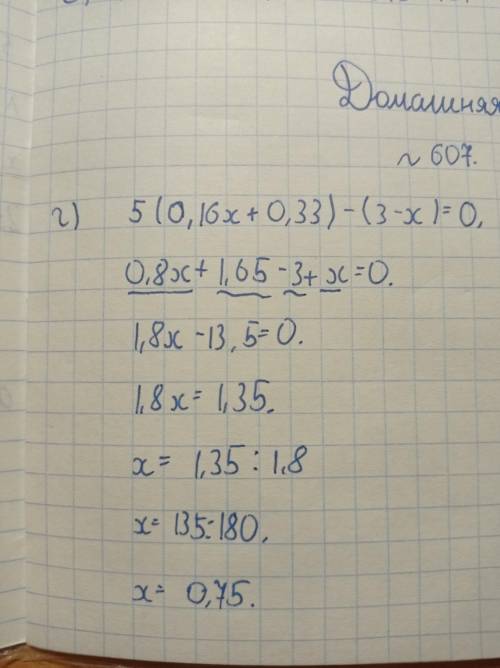 Домашняя
№ 607.
г) 5(0,16x + 0,33) - (3 - x) = 0,
0,8x + 1,65 - 3 + x = 0.
1,8x - 13,5 = 0.
1,8x = 1,35.
x = 1,35 : 1,8
x = 135 : 180.
x = 0,75.